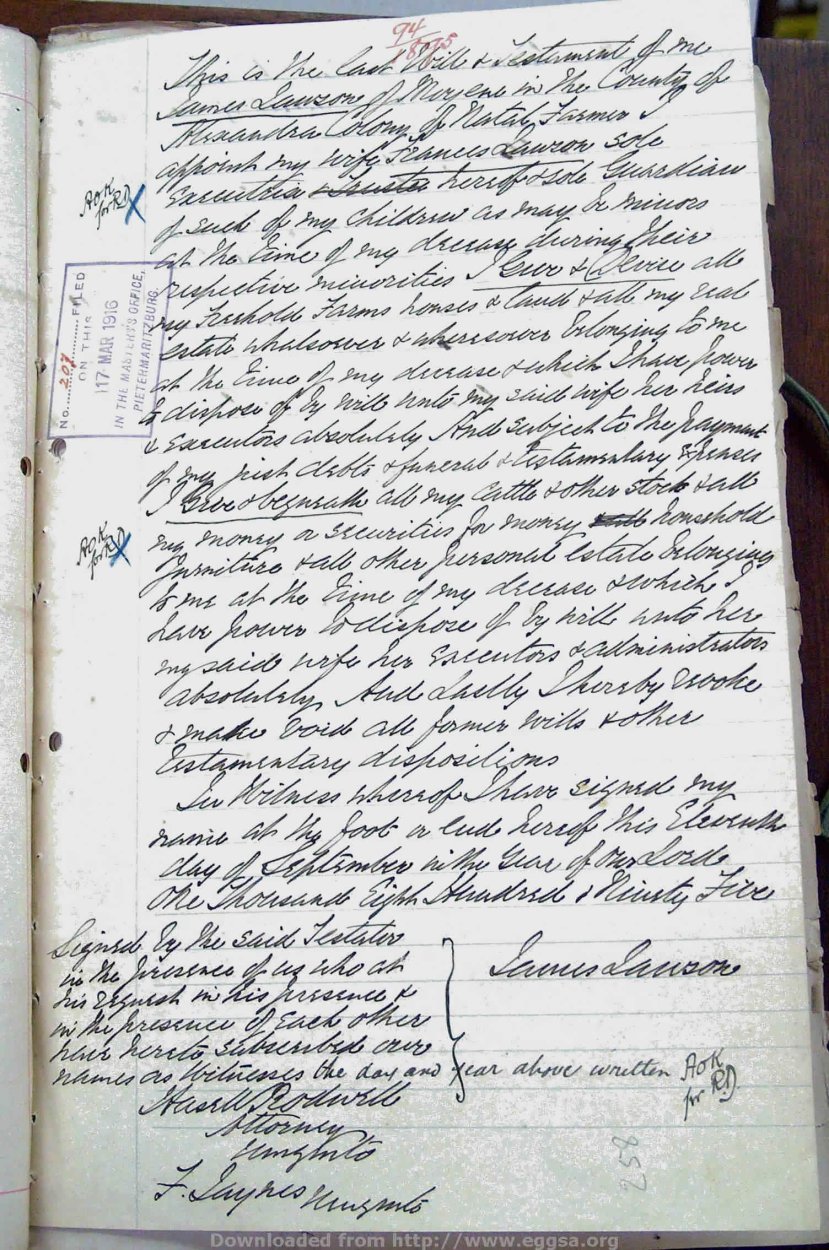 94
1895
This is the last Will & Testament of me
James Lawson of Moyeni in the County of
Alexandra Colony of Natal, Farmer I
appoint my wife Frances Lawson sole
Executrix & Trustee hereof & sole Guardian
of such of my Children as may be minors
at the time of my decease during their
respective minorities I Give & Devise all
my Freehold Farms houses & land & all my real
estate whatsoever & wheresoever belonging to me
at the time of my decease & which I have power
to dispose of by will unto my said wife her heirs
& Executors absolutely And subject to the payment
of my just debts & funeral & testamentary Expenses
I Give & bequeath all my Cattle & other Stock & all
my money or securities for money household
furniture & all other personal estate belonging
to me at the time of my decease & which I
have power to dispose of by will unto her
my said wife her Executors & administrators
absolutely And Lastly I hereby revoke
& make void all former wills & other
testamentary dispositions
In Witness whereof I have signed my
name at the foot or end hereof this Eleventh
day of September in the Year of Our Lord
One Thousand Eight Hundred & Ninety Five
Signed by the said Testator
in the presence of us who at
his request in his presence &
in the presence of each other
have hereto subscribed our
names as Witnesses the day and year above written
James Lawson
Rodwell
Attorney
Umzinto
F. Jaynes Umzinto
AOK
for RD
AOK
for RD
AOK
for RD
No. 207 FILED
ON THIS
17 MAR 1916
IN THE MASTER'S OFFICE,
PIETERMARITZBURG.
258
Downloaded from http://www.eggsa.org